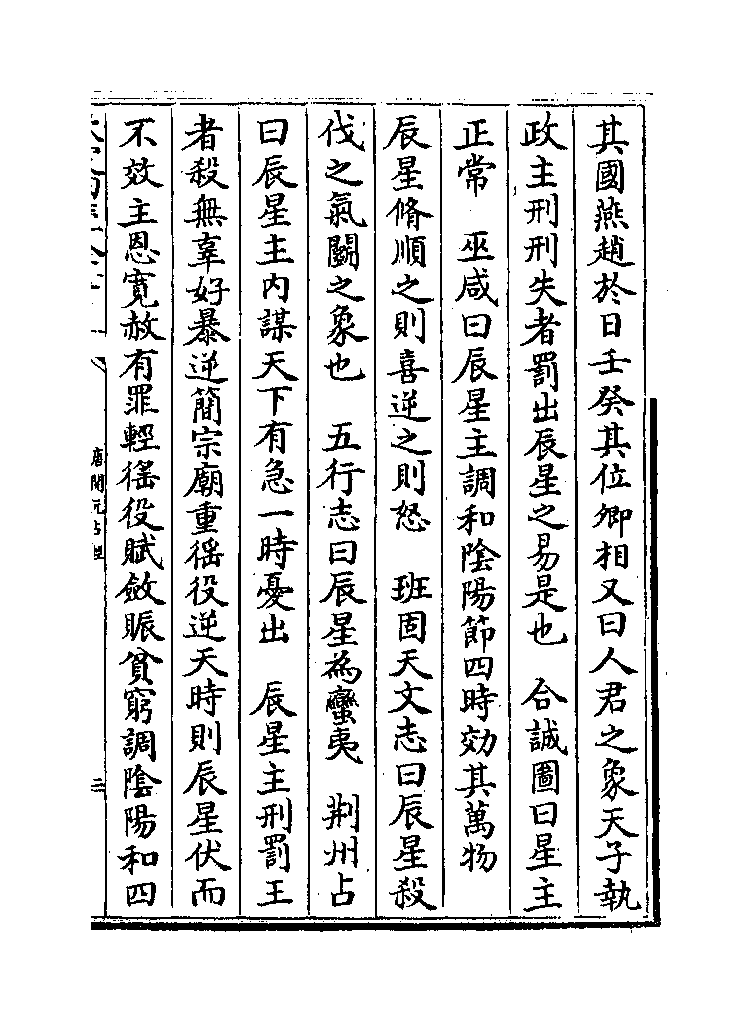 其國燕趙於日壬癸其位卿相又曰人君之象天子執
政主刑刑失者罰出辰星之易是也　合誠圖曰星主
正常　巫咸曰辰星主調和陰陽節四時効其萬物
辰星脩順之則喜逆之則怒　班固天文志曰辰星殺
伐之氣鬬之象也　五行志曰辰星為蠻夷　荆州占
曰辰星主内謀天下有急一時憂出　辰星主刑罰王
者殺無辜好暴逆簡宗廟重徭役逆天時則辰星伏而
不效主恩寛赦有罪輕徭役賦斂賑貧窮調陰陽和四
唐開元占經
二